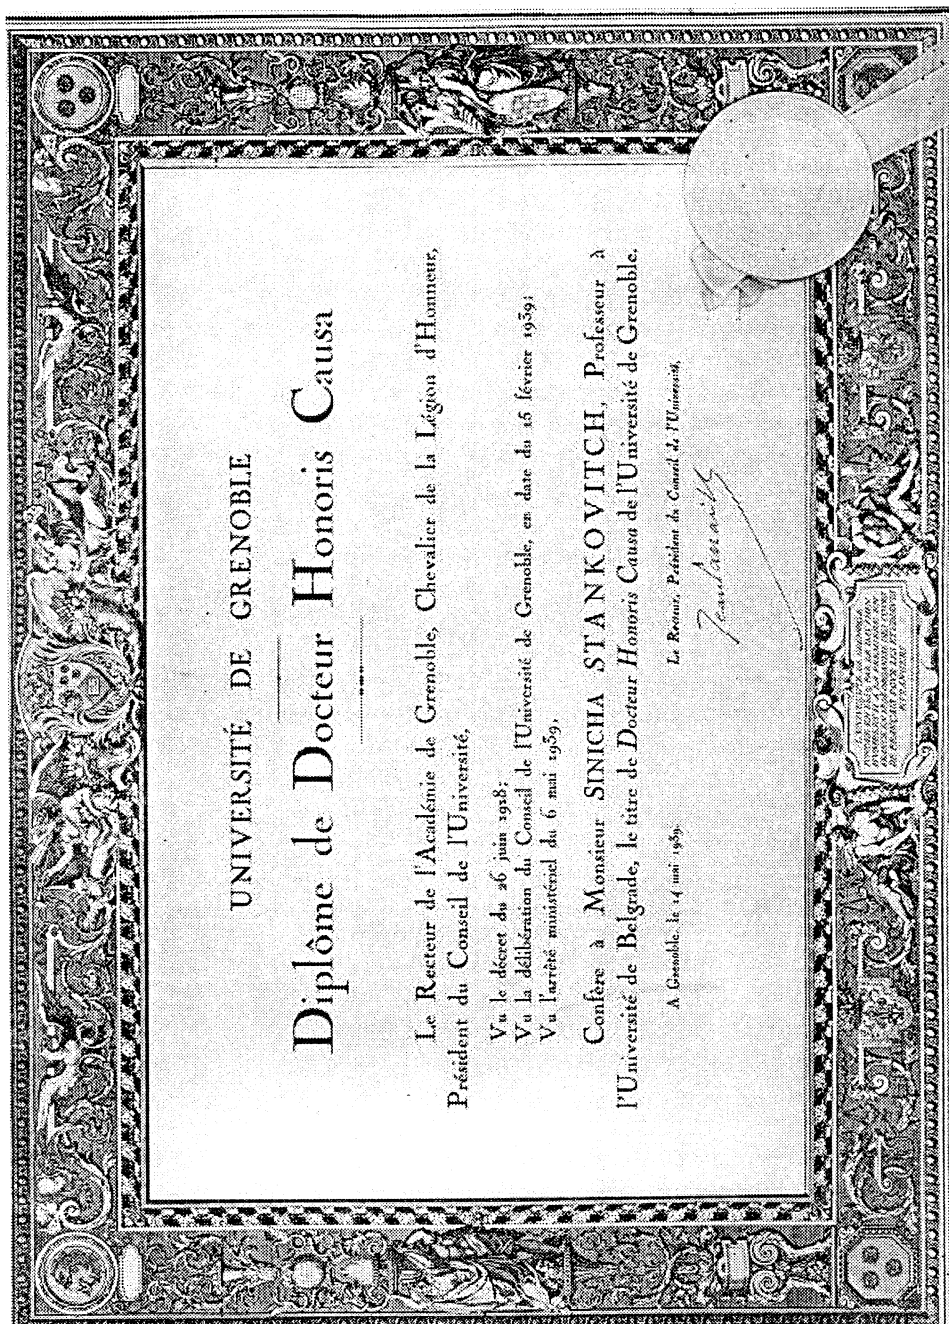 UNIVERSITÉ DE GRENOBLE
Diplôme de Docteur Honoris Causa
Le Recteur de l'Académie de Grenoble, Chevalier de la Légion d'Honneur,
Président du Conseil de l'Université,
Vu le décret du 26 juin 1918;
Vu la délibération du Conseil de l'Université de Grenoble, en date du 16 février 1939;
Vu l'arrêté ministériel du 6 mai 1939,
Confère à Monsieur SINICHA STANKOVITCH, Professeur à
l'Université de Belgrade, le titre de Docteur Honoris Causa de l'Université de Grenoble.
A Grenoble, le 14 mai 1939.
Le Recteur, Président du Conseil de l'Université,